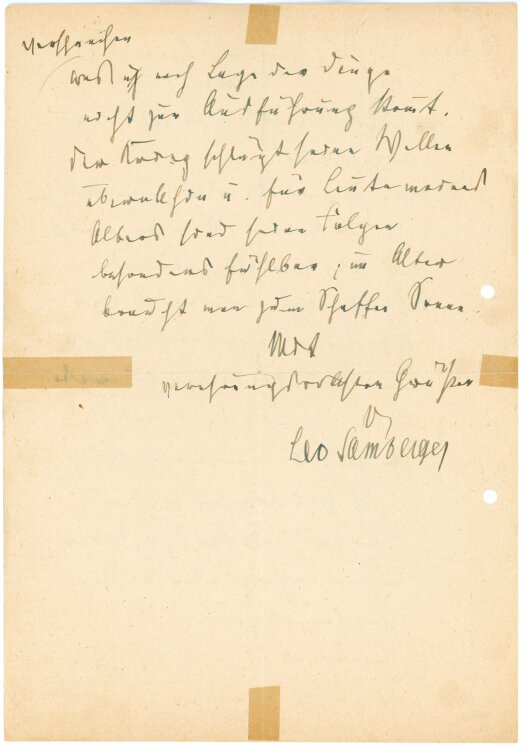 versprechen
was ich nach Lage der Dinge
nicht zur Ausführung kommt.
Der Krieg schlägt seine Wellen
überallhin u. für Leute meines
Alters sind seine Folgen
besonders fühlbar; im Alter
braucht man zum Schaffen Sonne.
Mit
verehrungsvollsten Grüßen
Leo Samberger